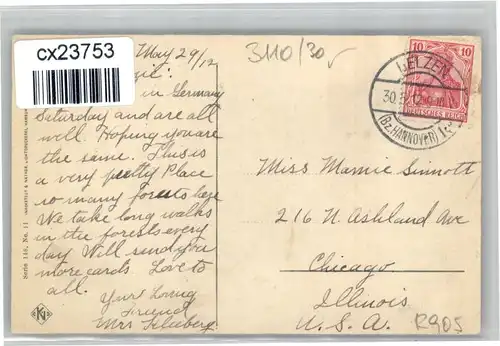 cx23753
May 29/12
3110/30
in Germany
Saturday and are all
well. Hoping you are
the same. This is
a very pretty Place
so many forests here
We take long walks
in the forests every
day Will send you
more cards. Love to
all.
Your Loving
Friend
Mrs
Serie 115, No. 11
10 10
DEUTSCHES REICH
UELZEN
(Bz. HANNOVER)
Miss Mamie Sinnott
216 N. Ashland Ave
Chicago
Illinois
U. S. A.
R905